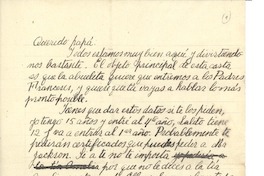 Querido papá
Todos estamos muy bien aquí y divirtiéndo
nos bastante. El objeto principal de esta carta
es que la abuelita quiere que entremos a los Padres
Franceses, y quiere que tu vayas a hablar lo más
pronto posible.
Tienes que dar estos datos si te los piden,
yo tengo 15 años y entro al 4º año, Lalito tiene
12 y va a entrar al 1er año. Probablemente te
pedirán certificados que puedes pedir a Mr
Jackson. Si a ti no te importa
por que no le dices a la tía